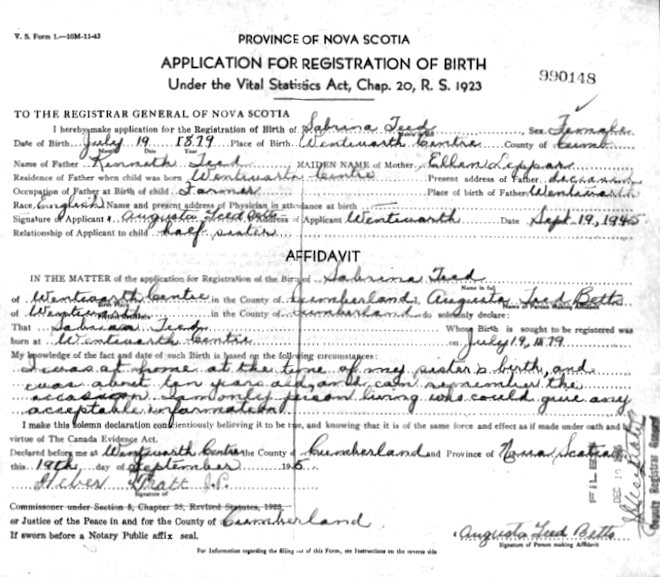 V. S. Form 1.—10M-11-43
PROVINCE OF NOVA SCOTIA
APPLICATION FOR REGISTRATION OF BIRTH
990148
Under the Vital Statistics Act, Chap. 20, R. S. 1923
TO THE REGISTRAR GENERAL OF NOVA SCOTIA
I hereby make application for the Registration of Birth of Sabrina Teed Sex Female
Name in full
Date of Birth July 19 1879 Place of Birth Wentworth Centre County of Cumb.
Month Date Year
Name of Father Kenneth Teed MAIDEN NAME of Mother Ellen Leppar
Residence of Father when child was born Wentworth Centre Present address of Father deceased
Occupation of Father at Birth of child Farmer Place of birth of Father Wentworth
Race English Name and present address of Physician in attendance at birth —
Signature of Applicant Augusta Teed Betts Address of Applicant Wentworth Date Sept. 19, 1945
Relationship of Applicant to child half sister
AFFIDAVIT
IN THE MATTER of the application for Registration of the Birth of Sabrina Teed
Name in full
of Wentworth Centre in the County of Cumberland, Augusta Teed Betts
Birth Place Name of Person making Affidavit
of Wentworth in the County of Cumberland do solemnly declare:
That Sabrian Teed Whose Birth is sought to be registered was
born at Wentworth Centre on July 19, 1879
My knowledge of the fact and date of such Birth is based on the following circumstances:
I was at home at the time of my sister's birth, and
was about ten years old, and can remember the
occassion. I am only person living who could give any
acceptable information.
I make this solemn declaration conscientiously believing it to be true, and knowing that it is of the same force and effect as if made under oath and by
virtue of The Canada Evidence Act.
Declared before me at Wentworth Centre the County of Cumberland and Province of Nova Scotia
this 19th day of September 1945
Heber Pratt J.P.
Signature of
Commissioner under Section 8, Chapter 38, Revised Statutes, 1923,
or Justice of the Peace in and for the County of Cumberland.
If sworn before a Notary Public affix seal.
Augusta Teed Betts
Signature of Person making Affidavit
For Information regarding the filling out of this Form, see Instructions on the reverse side
FILED
DEC 10
Deputy Registrar General